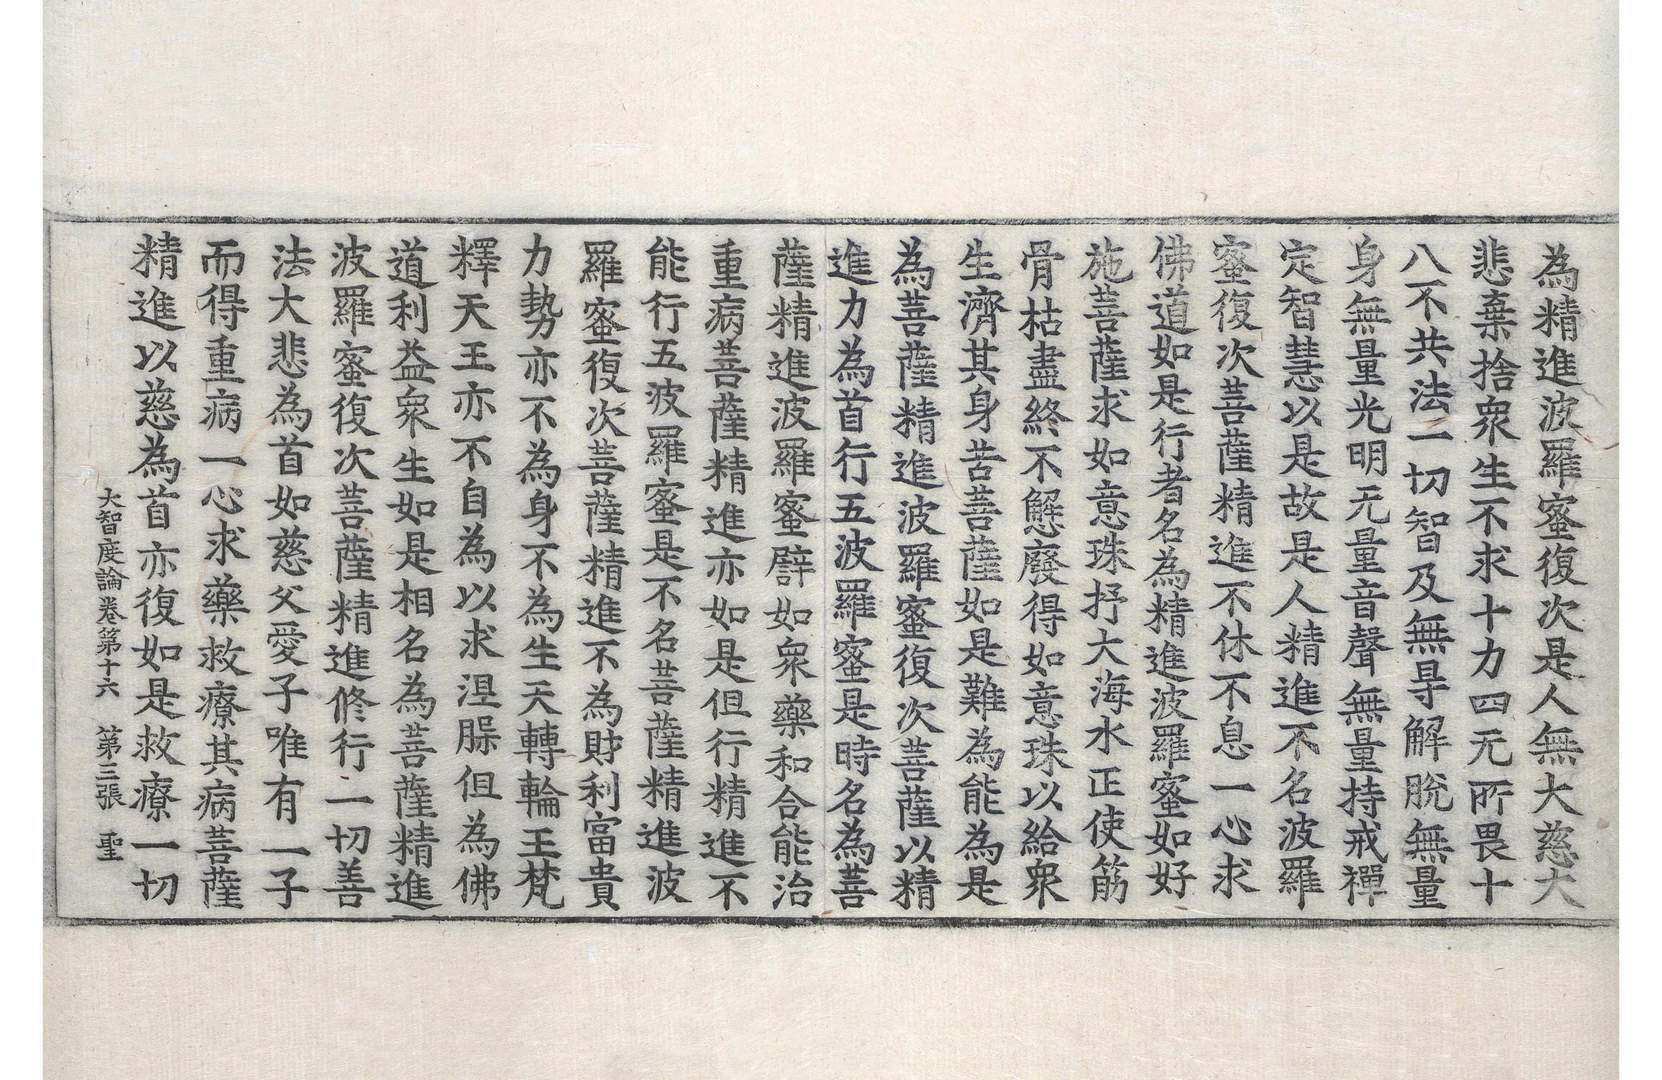 為精進波羅蜜復次是人無大慈大
悲棄捨衆生不求十力四无所畏十
八不共法一切智及無㝵解脫無量
身無量光明无量音聲無量持戒禪
定智慧以是故是人精進不名波羅
蜜復次菩薩精進不休不息一心求
佛道如是行者名為精進波羅蜜如好
施菩薩求如意珠抒大海水正使筋
骨枯盡終不懈廢得如意珠以給衆
生濟其身苦菩薩如是難為能為是
為菩薩精進波羅蜜復次菩薩以精
進力為首行五波羅蜜是時名為菩
薩精進波羅蜜譬如衆藥和合能治
重病菩薩精進亦如是但行精進不
能行五波羅蜜是不名菩薩精進波
羅蜜復次菩薩精進不為財利富貴
力勢亦不為身不為生天轉輪王梵
釋天王亦不自為以求涅槃但為佛
道利益衆生如是相名為菩薩精進
波羅蜜復次菩薩精進修行一切善
法大悲為首如慈父愛子唯有一子
而得重病一心求藥救療其病菩薩
精進以慈為首亦復如是救療一切
大智度論卷第十六 第三張 聖